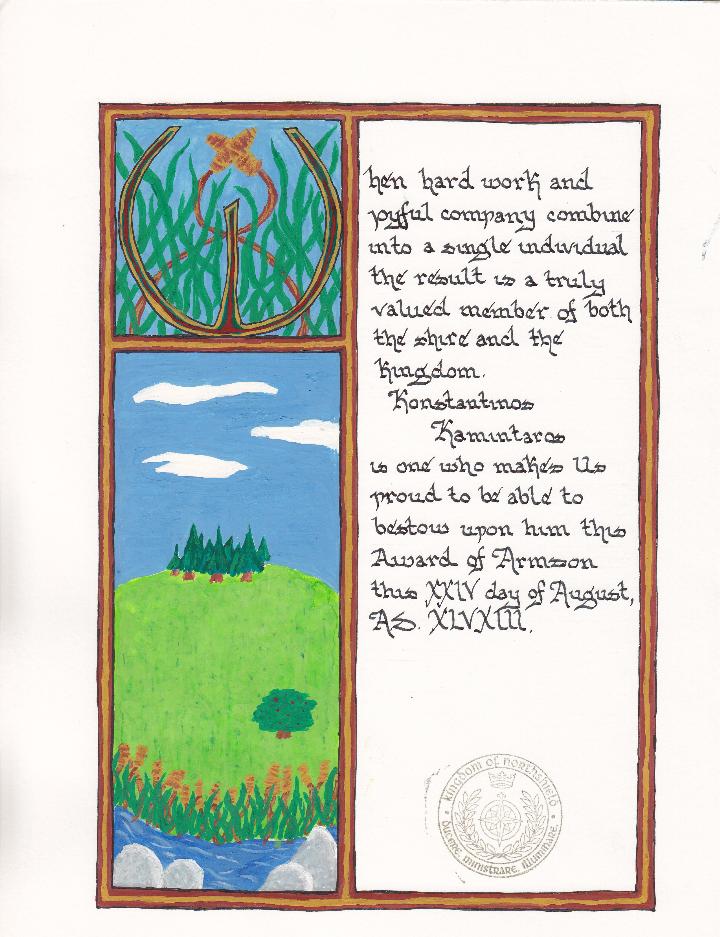 W
hen hard work and
joyful company combine
into a single individual
the result is a truly
valued member of both
the shire and the
Kingdom.
Konstantinos
Kamintaros
is one who makes Us
proud to be able to
bestow upon him this
Award of Arms on
this XXIV day of August,
AS. XLVXIII.
KINGDOM OF NORTHSHIELD
DUCERE, MINISTRARE, ILLUMINARE